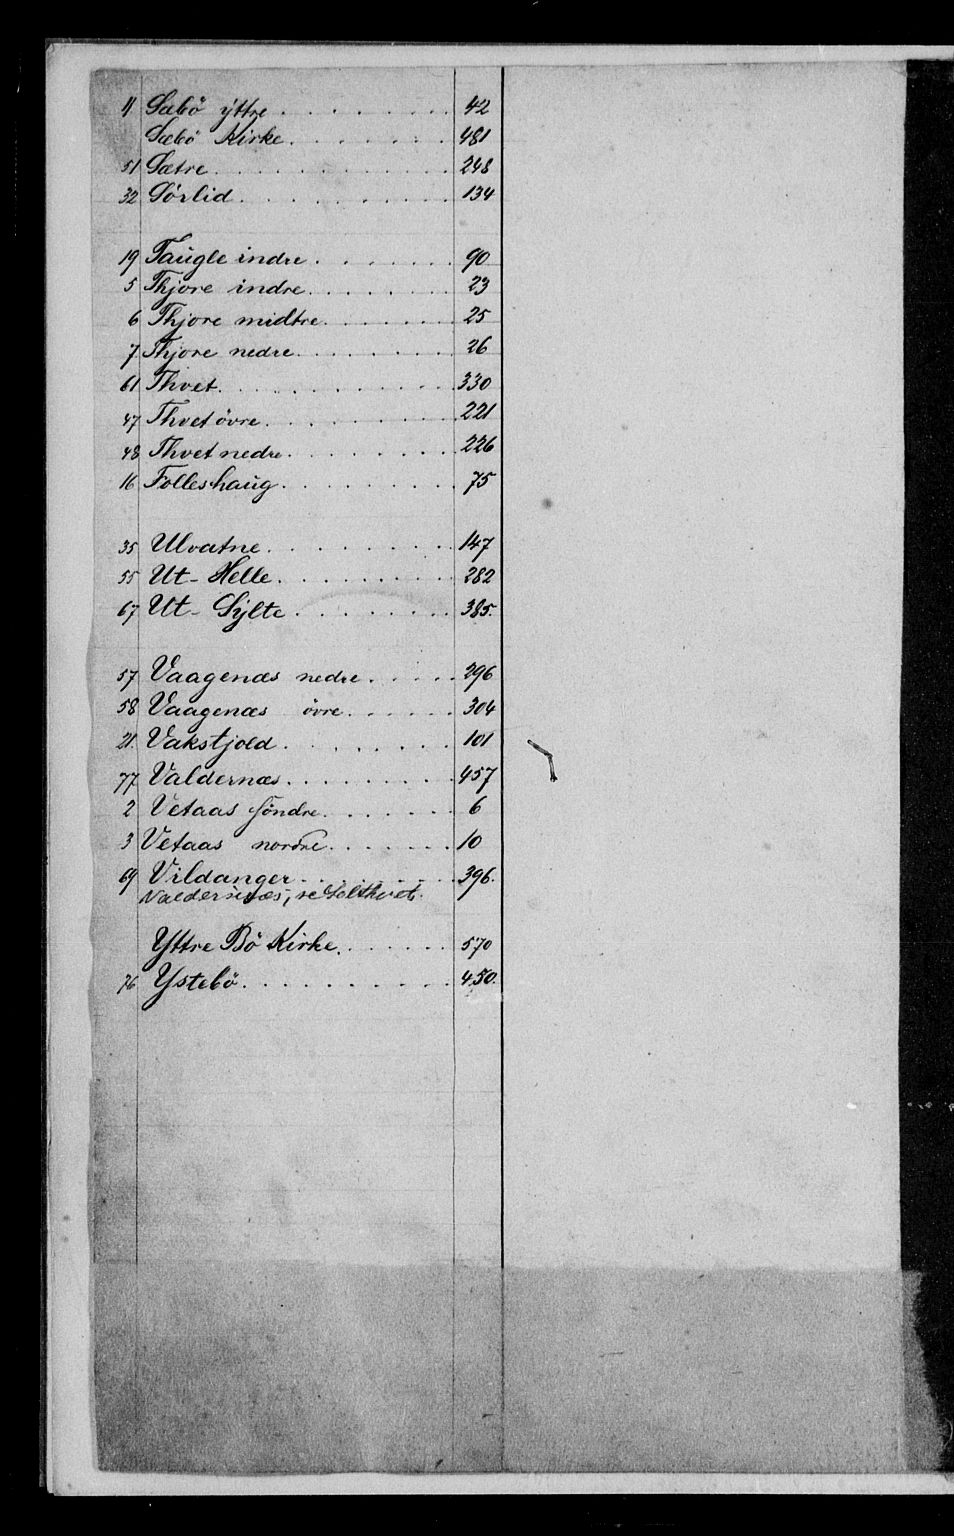 11 Sæbö yttre . . . . . . . . 42
Sæbö Kirke . . . . . . . 481
51 Sætre . . . . . . . . . . 248
32 Sörlid . . . . . . . . . . 134
19 Taugle indre . . . . . . . 90
5 Thjore indre . . . . . . . 23
6 Thjore midtre . . . . . . . 25
7 Thjore nedre . . . . . . . 26
61 Thvet . . . . . . . . . . 330
47 Thvet övre . . . . . . . . 221
48 Thvet nedre . . . . . . . . 226
16 Tolleshaug . . . . . . . . 75
35 Ulvatne . . . . . . . . . 147
55 Ut-Helle . . . . . . . . . 282
67 Ut-Sylte . . . . . . . . 385.
57 Vaagenæs nedre . . . . . 296
58 Vaagenæs övre . . . . . . 304
21. Vakstjold . . . . . . . . 101
77 Valdernæs . . . . . . . . 457
2 Vetaas söndre . . . . . . 6
3 Vetaas nordre . . . . . . . 10
69 Vildanger . . . . . . . . 396.
Valdersnæs, se
Yttre Bö Kirke . . . . . . 570
76 Ystebö . . . . . . . . . 450.